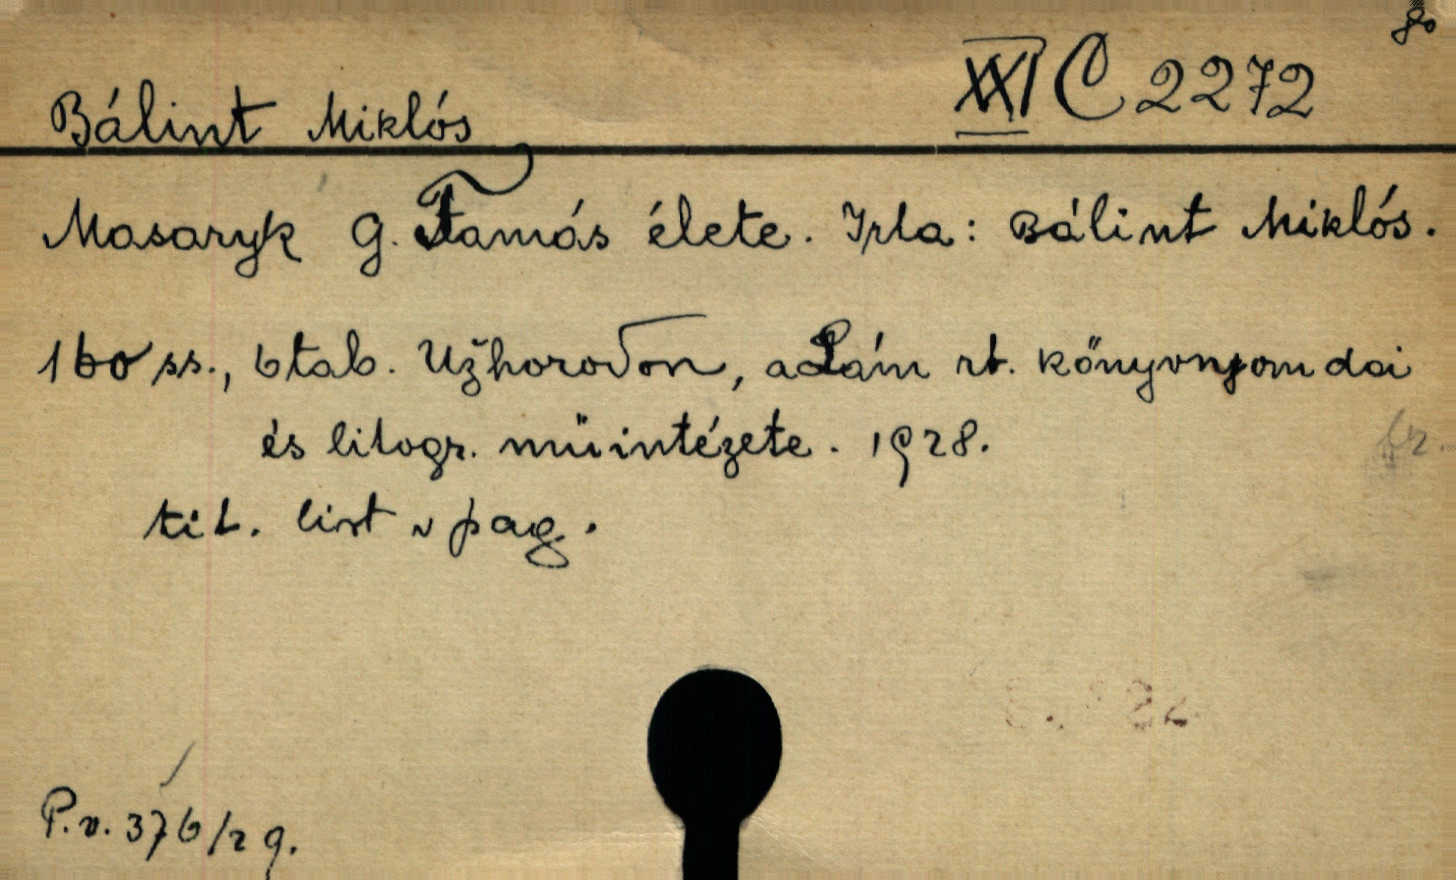 8°
Bálint Miklós XXI C 2272
Masaryk G. Tamás élete. Irta: Bálint Miklós.
160 ss., 6 tab. Užhorodon, a Lám rt. könyvnyomdai
és litogr. müintézete. 1928.
tit. list v pag.
P.v. 376/29.